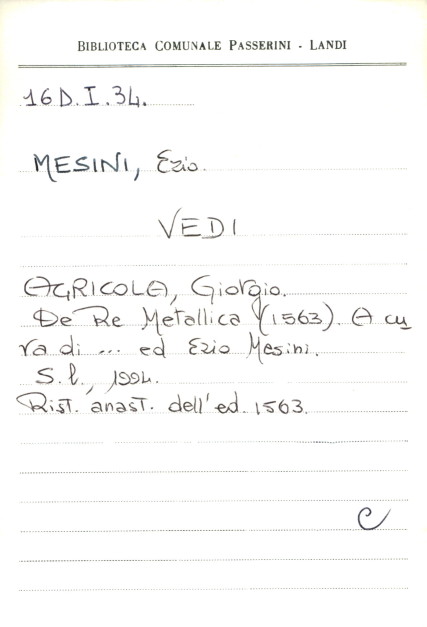 BIBLIOTECA COMUNALE PASSERINI - LANDI
16 D. I. 34.
MESINI, Ezio.
VEDI
AGRICOLA, Giorgio.
De Re Metallica (1563). A cu
ra di ... ed Ezio Mesini.
S. l., 1994.
Rist. anast. dell'ed. 1563.
C